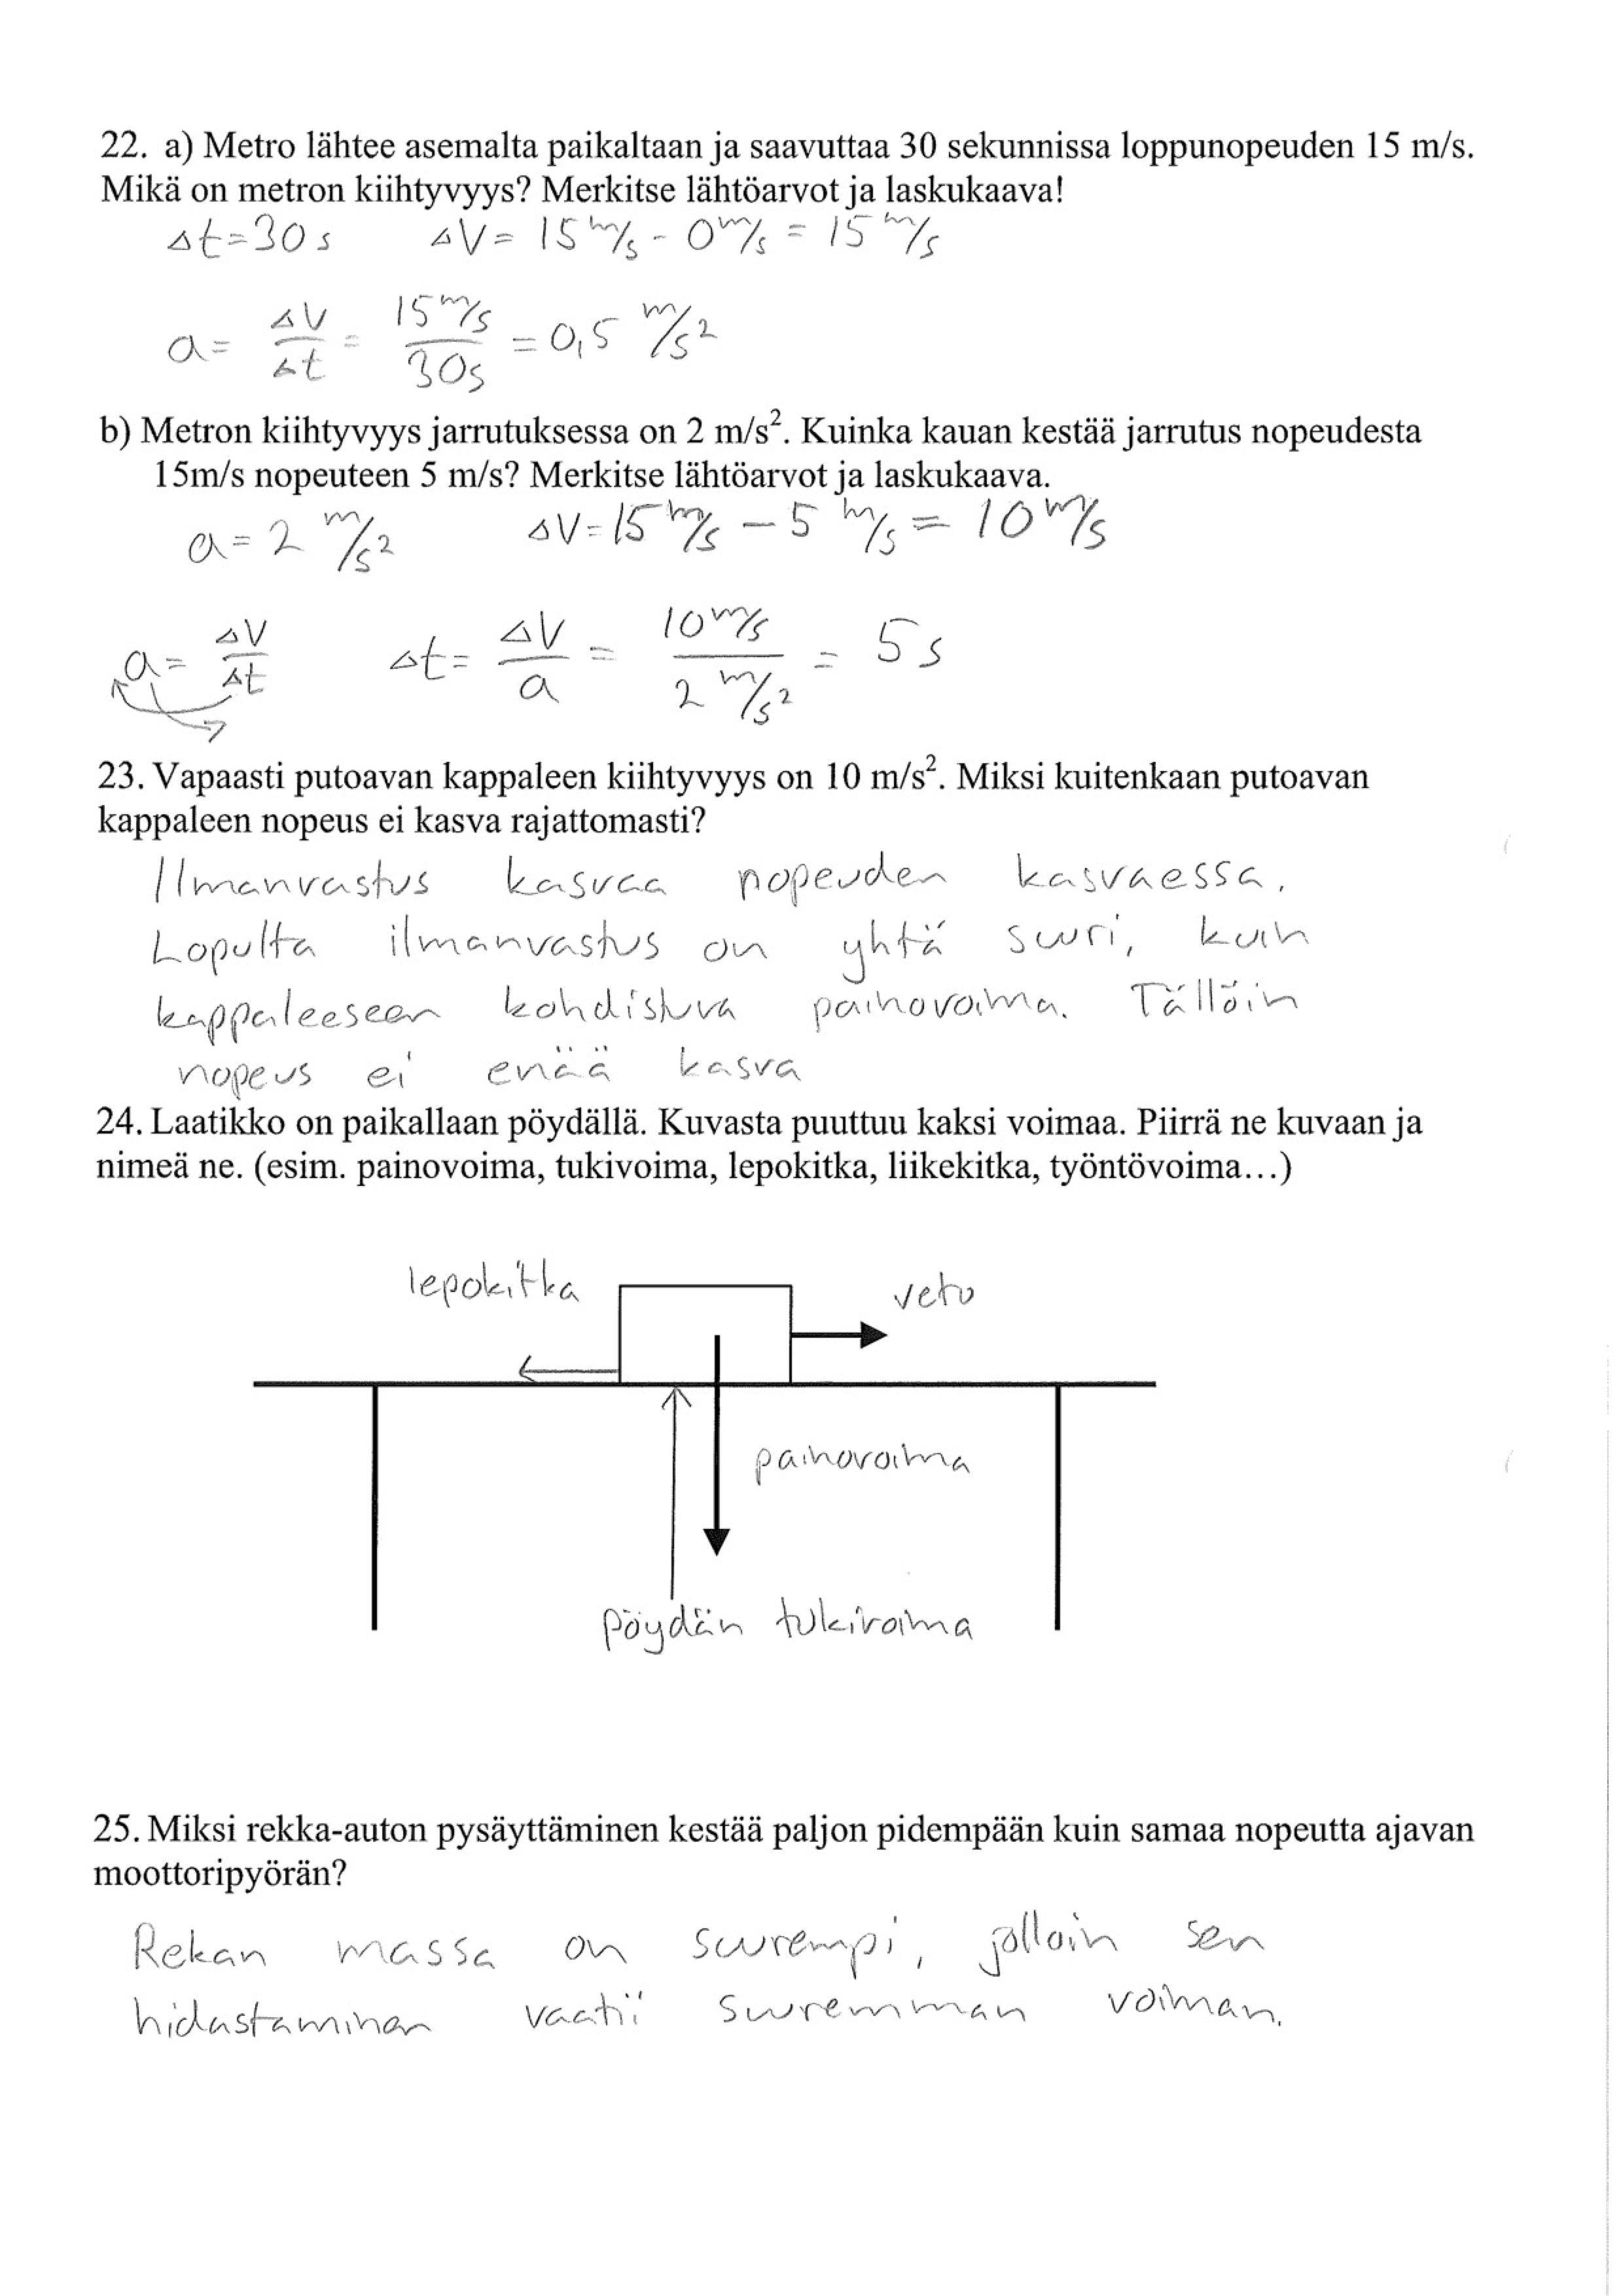 22. a) Metro lähtee asemalta paikaltaan ja saavuttaa 30 sekunnissa loppunopeuden 15 m/s.
Mikä on metron kiihtyvyys? Merkitse lähtöarvot ja laskukaava!
Δt=30 s ΔV= 15 m/s - 0 m/s = 15 m/s
a= ΔV/Δt = 15 m/s / 30s = 0,5 m/s²
b) Metron kiihtyvyys jarrutuksessa on 2 m/s². Kuinka kauan kestää jarrutus nopeudesta
15m/s nopeuteen 5 m/s? Merkitse lähtöarvot ja laskukaava.
a= 2 m/s² ΔV= 15 m/s - 5 m/s = 10 m/s
a= ΔV/Δt Δt= ΔV/a = 10 m/s / 2 m/s² = 5 s
23. Vapaasti putoavan kappaleen kiihtyvyys on 10 m/s². Miksi kuitenkaan putoavan
kappaleen nopeus ei kasva rajattomasti?
Ilmanvastus kasvaa nopeuden kasvaessa.
Lopulta ilmanvastus on yhtä suuri, kuin
kappaleeseen kohdistuva painovoima. Tällöin
nopeus ei enää kasva
24. Laatikko on paikallaan pöydällä. Kuvasta puuttuu kaksi voimaa. Piirrä ne kuvaan ja
nimeä ne. (esim. painovoima, tukivoima, lepokitka, liikekitka, työntövoima…)
lepokitka veto
painovoima
pöydän tukivoima
25. Miksi rekka-auton pysäyttäminen kestää paljon pidempään kuin samaa nopeutta ajavan
moottoripyörän?
Rekan massa on suurempi, jolloin sen
hidastaminen vaatii suuremman voiman.